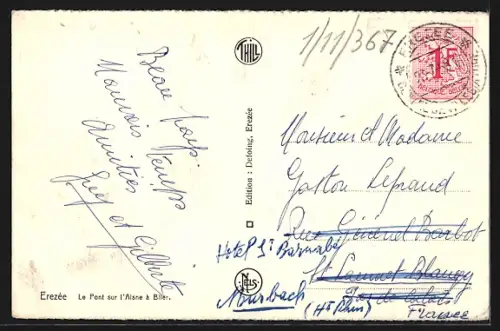 Beau pays
Mauvais temps
Amitiés
Guy et Gilberte
THILL
1/11/367
EREZÉE
1F
BELGIQUE BELGIE
Edition : Detoing, Erezée
NELS
Monsieur et Madame
Gaston Legrand
Rue Général Barbot
Hotel St Barnabé
St Laurent Blangy
Pas de Calais
Murbach (Ht Rhin)
France
Erezée Le Pont sur l'Aisne à Blier.